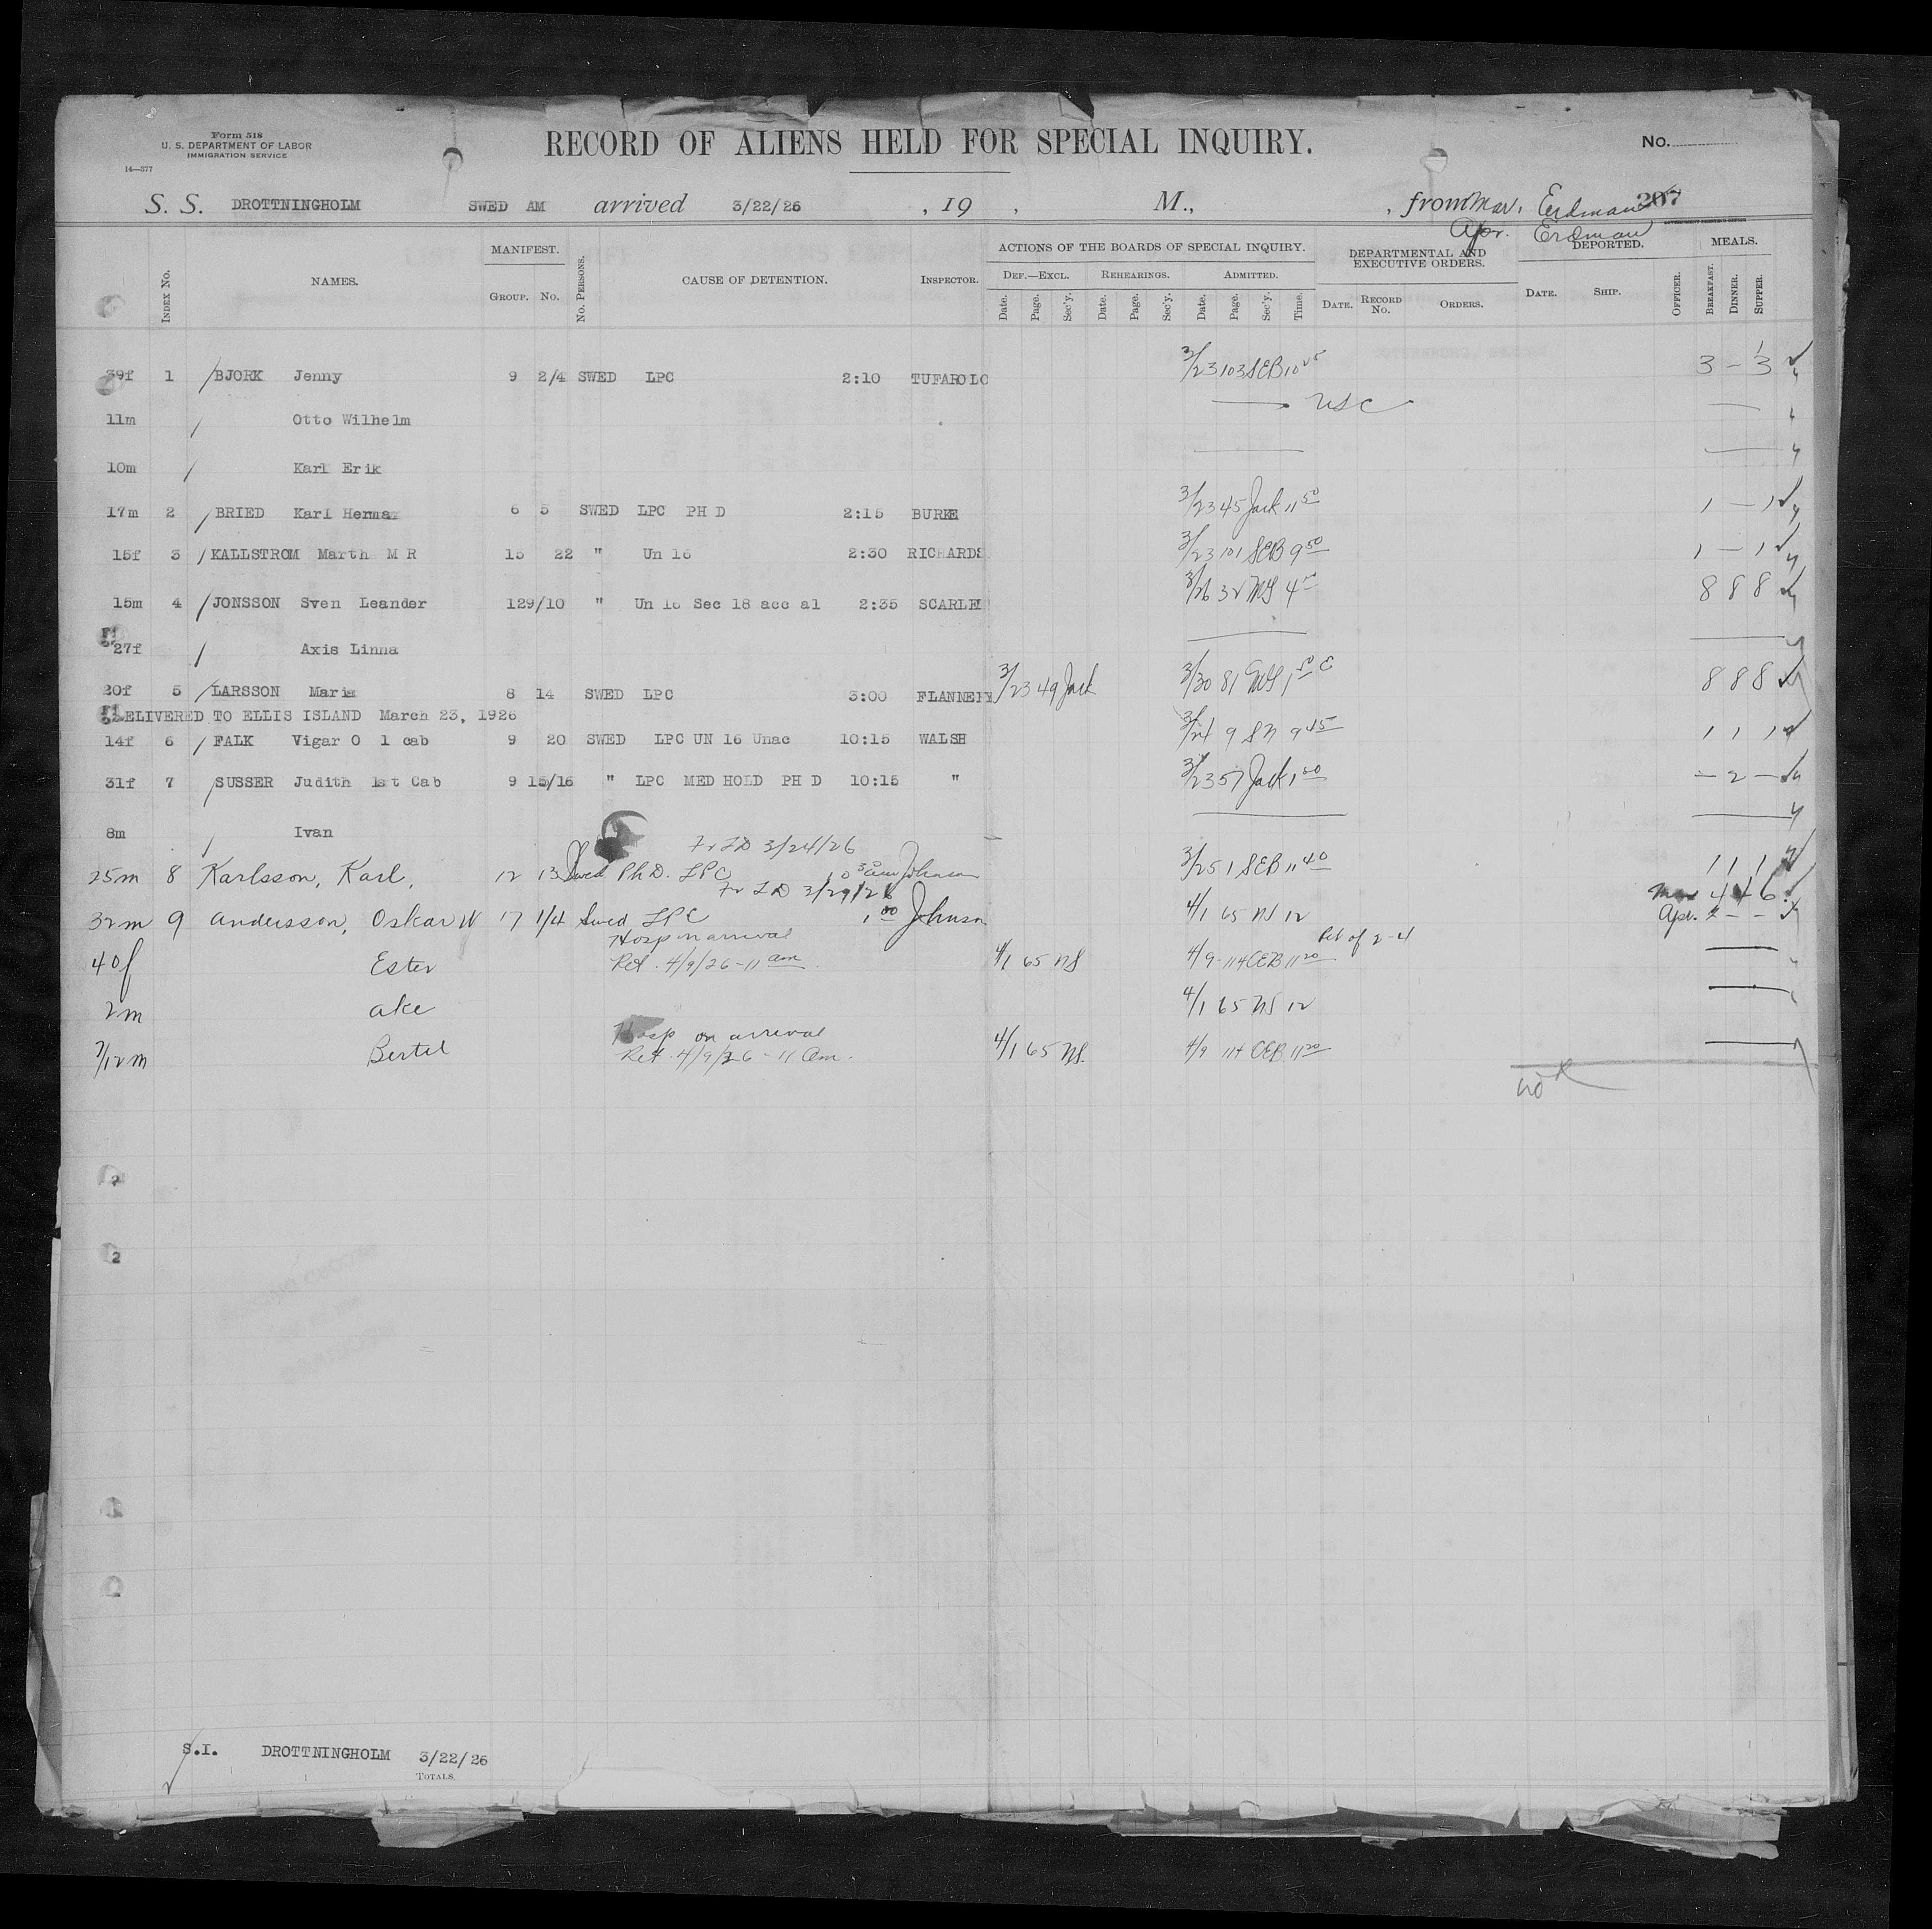 Form 518
U. S. DEPARTMENT OF LABOR
IMMIGRATION SERVICE
14—877
RECORD OF ALIENS HELD FOR SPECIAL INQUIRY.
No.
S. S. DROTTNINGHOLM SWED AM arrived 3/22/26 , 19 , M., , from Mar. Erdman 207
Apr. Erdman
NAMES. MANIFEST. CAUSE OF DETENTION. INSPECTOR. ACTIONS OF THE BOARDS OF SPECIAL INQUIRY. DEPARTMENTAL AND EXECUTIVE ORDERS. DEPORTED. MEALS.
Index No. Group. No. No. Persons. Def.—Excl. Rehearings. Admitted.
Date. Page. Sec'y. Date. Page. Sec'y. Date. Page. Sec'y. Time. Date. Record No. Orders. Date. Ship. Officer. Breakfast. Dinner. Supper.
39f 1 / BJORK Jenny 9 2/4 SWED LPC 2:10 TUFAROLO 3/23 103 SEB 10 3 – 3
11m / Otto Wilhelm USC
10m / Karl Erik
17m 2 / BRIED Karl Herman 6 5 SWED LPC PH D 2:15 BURKE 3/23 45 Jack 11 50 1 – 1
15f 3 / KALLSTROM Marth M R 15 22 " Un 16 2:30 RICHARDS 3/23 101 SEB 9 50 1 – 1
15m 4 / JONSSON Sven Leander 129/10 " Un 16 Sec 18 acc al 2:35 SCARLE 3/26 32 MG 4 8 8 8
27f / Axis Linna
20f 5 / LARSSON Maria 8 14 SWED LPC 3:00 FLANNERY 3/23 49 Jack 3/30 81 MG 1 50 8 8 8
DELIVERED TO ELLIS ISLAND March 23, 1926
14f 6 / FALK Vigar O 1 cab 9 20 SWED LPC UN 16 Unac 10:15 WALSH 3/24 9 SN 9 45 1 1 1
31f 7 / SUSSER Judith 1st Cab 9 15/16 " LPC MED HOLD PH D 10:15 " 3/23 57 Jack 1 50 – 2 –
8m / Ivan
Fr TD 3/24/26
25m 8 Karlsson, Karl, 12 13 Swed Ph D. LPC Johnson 3/25 1 SEB 11 40 1 1 1
Fr TD 3/29/26
32m 9 Andersson, Oskar W 17 1/4 Swed LPC 1 00 Johnson 4/1 65 NS 12 Mar 4 4 6
Apr. 2 – –
Hosp on arrival
40f Ester Ret. 4/9/26 - 11 am 4/1 65 NS 4/9 114 CEB 11 20 Ret of 2-4
2m Ake 4/1 65 NS 12
Hosp on arrival
7/12m Bertil Ret 4/9/26 - 11 am. 4/1 65 NS. 4/9 114 CEB 11 20
S.I. DROTTNINGHOLM 3/22/26
Totals.